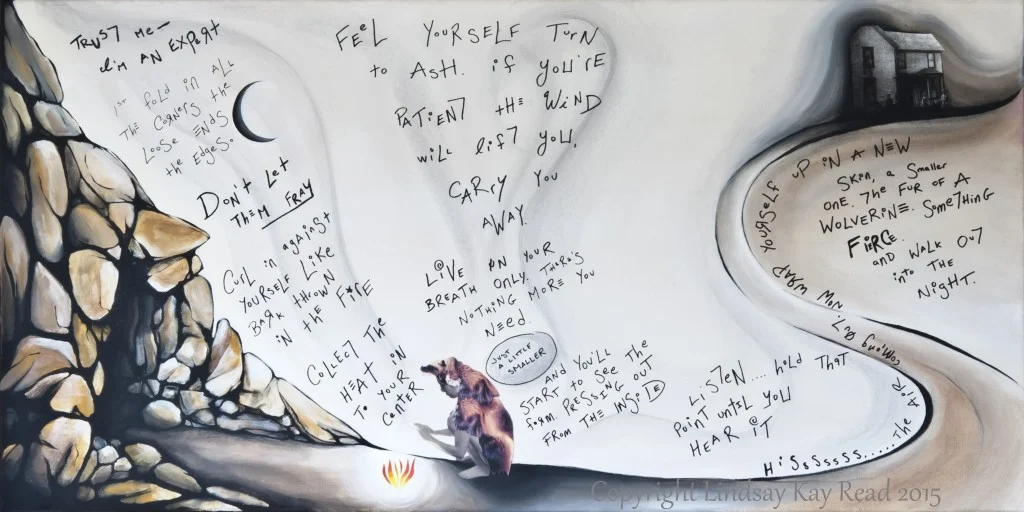 TRUST ME—
I'M AN EXPERT
1st fold in ALL
THE CORNERS the
LOOSE ENDS
the EDGES.
DON'T LET
THEM FRAY
CURL in against
YOURSELF LIKE
BARK thrown
in the FIRE
COLLECT THE
HEAT IN
TO YOUR
CENTER
FEEL YOURSELF TURN
to ASH. if YOU'RE
PATIENT tHE WIND
will lift YOU,
CARRY YOU
AWAY.
LIVE ON YOUR
BREATH ONLY. THERE'S
NOTHING MORE YOU
NEED.
JUST
A LITTLE
SMALLER
AND YOU'LL
START to SEE the
form PRESSING OUT
FROM THE INSIDE
LISTEN.... hold THAT
POINT until YOU
HEAR IT
HiSsSssss.....The AIR COMING OUT. NOW WRAP YOURSELF UP IN A NEW
SKIN, a Smaller
ONE. THE FUR OF A
WOLVERINE. SOMETHING
FIERCE.
and WALK OUT
into THE
NIGHT.
Copyright Lindsay Kay Read 2015